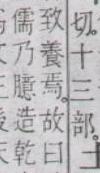 切。十三部。
致養焉。故曰
儒乃臆造乾